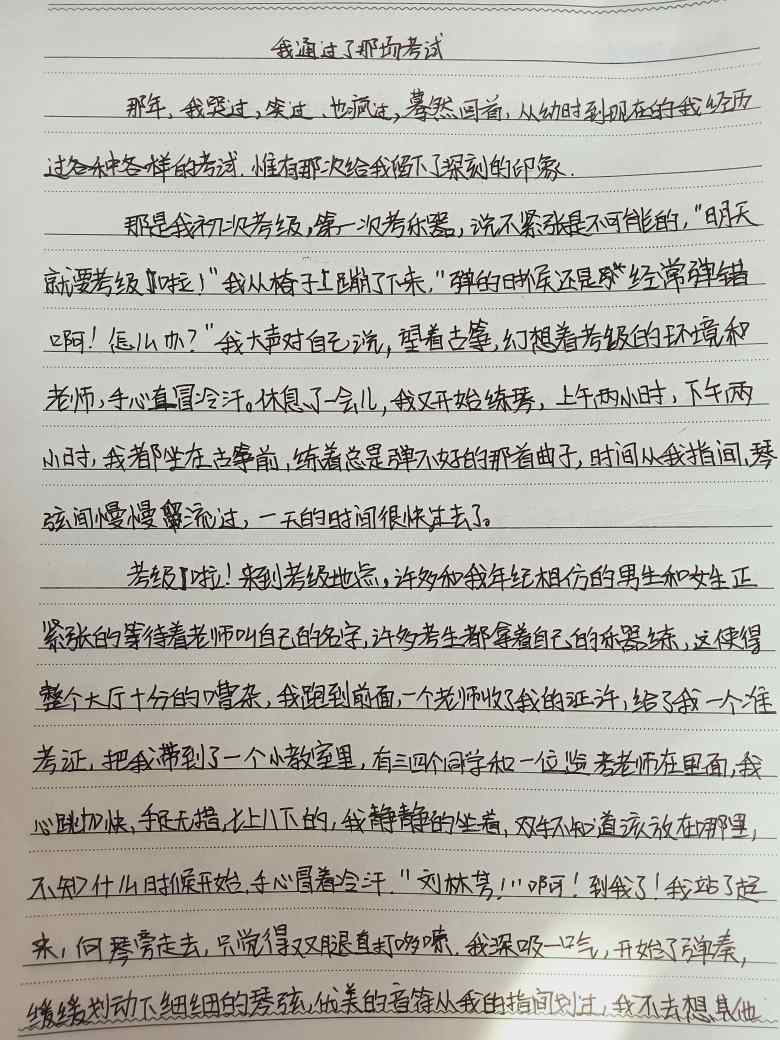 我通过了那场考试
那年,我哭过,笑过,也疯过,蓦然回首,从幼时到现在的我经历
过各种各样的考试.惟有那次给我留下了深刻的印象.
那是我初次考级,第一次考乐器,说不紧张是不可能的,"明天
就要考级啦!"我从椅子上蹦了下来,"弹的时候还是经常弹错
啊!怎么办?"我大声对自己说,望着古筝,幻想着考级的环境和
老师,手心直冒冷汗。休息了一会儿,我又开始练琴,上午两小时,下午两
小时,我都坐在古筝前,练着总是弹不好的那首曲子,时间从我指间,琴
弦间慢慢流过,一天的时间很快过去了。
考级啦!来到考级地点,许多和我年纪相仿的男生和女生正
紧张的等待着老师叫自己的名字,许多考生都拿着自己的乐器练,这使得
整个大厅十分的嘈杂,我跑到前面,一个老师收了我的证许,给了我一个准
考证,把我带到了一个小教室里,有三四个同学和一位监考老师在里面,我
心跳加快,手足无措,七上八下的,我静静的坐着,双手不知道该放在哪里,
不知什么时候开始,手心冒着冷汗."刘林!"啊!到我了!我站了起
来,向琴旁走去,只觉得双腿直打哆嗦.我深吸一口气,开始了弹奏,
缓缓划动下细细的琴弦,优美的音符从我的指间划过,我不去想其他